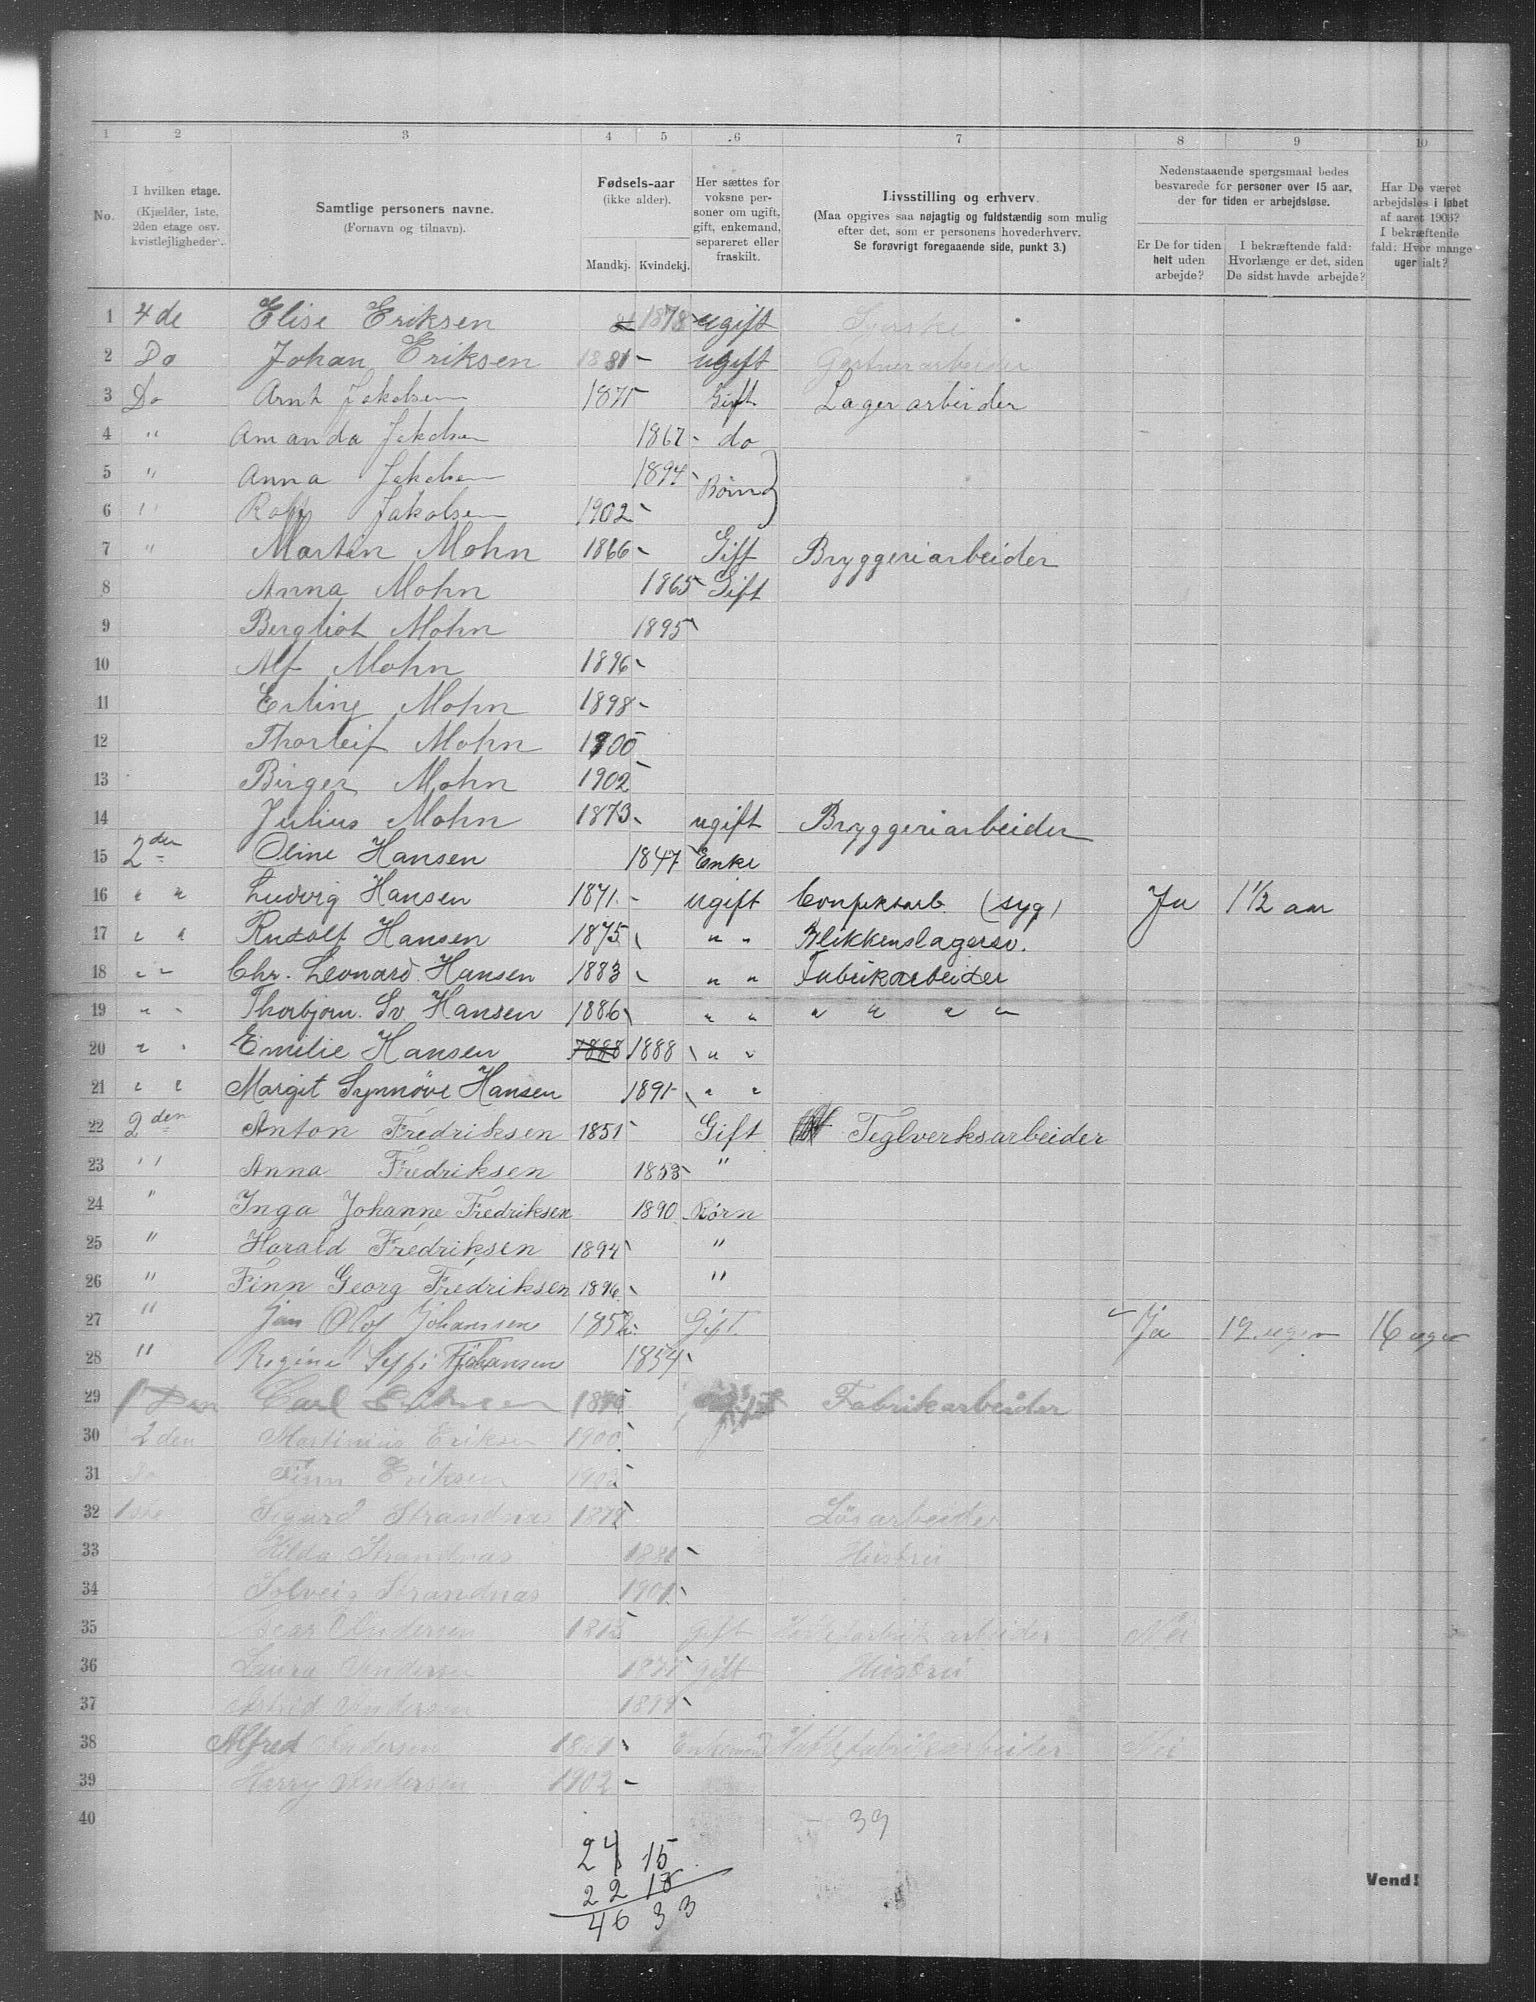 1 2 3 4 5 6 7 8 9 10
No.
I hvilken etage.
(Kjælder, 1ste,
2den etage osv.
kvistlejligheder).
Samtlige personers navne.
(Fornavn og tilnavn).
Fødsels-aar
(ikke alder).
Mandkj. Kvindekj.
Her sættes for
voksne per-
soner om ugift,
gift, enkemand,
separeret eller
fraskilt.
Livsstilling og erhverv.
(Maa opgives saa nøjagtig og fuldstændig som mulig
efter det, som er personens hovederhverv.
Se forøvrigt foregaaende side, punkt 3.)
Nedenstaaende spørgsmaal bedes
besvarede for personer over 15 aar,
der for tiden er arbejdsløse.
Er De for tiden
helt uden
arbejde?
I bekræftende fald:
Hvorlænge er det, siden
De sidst havde arbejde?
Har De været
arbejdsløs i løbet
af aaret 1903?
I bekræftende
fald: Hvor mange
uger ialt?
1 4de Elise Eriksen 1878 ugift
2 Do Johan Eriksen 1881 ugift Gartnerarbeider
3 Do Arnt Jakobsen 1871 Gift Lagerarbeider
4 " Amanda Jakobsen 1867 do
5 " Anna Jakobsen 1894 Børn
6 " Rolf Jakobsen 1902
7 " Martin Mohn 1866 Gift Bryggeriarbeider
8 Anna Mohn 1865 Gift
9 Bergliot Mohn 1895
10 Alf Mohn 1896
11 Erling Mohn 1898
12 Thorleif Mohn 1900
13 Birger Mohn 1902
14 Julius Mohn 1873 ugift Bryggeriarbeider
15 2den Oline Hansen 1847 Enke
16 " " Ludvig Hansen 1871 ugift Confektarb. (syg) Ja 1 1/2 aar
17 " " Rudolf Hansen 1875 " " Blikkenslagersv.
18 " " Chr. Leonard Hansen 1883 " " Fabrikarbeider
19 " " Thorbjørn Sv. Hansen 1886 " " " " " "
20 " " Emilie Hansen 1888 1888 " "
21 " " Margit Synnöve Hansen 1891 " "
22 2den Anton Fredriksen 1851 Gift Teglverksarbeider
23 " Anna Fredriksen 1853 "
24 " Inga Johanne Fredriksen 1890 Børn
25 " Harald Fredriksen 1894 "
26 " Finn Georg Fredriksen 1896 "
27 " Jan Olof Johansen 1852 Gift. Ja 12 uger 16 uger
28 " Regine Johansen 1854
29 1 Den Carl Eriksen Fabrikarbeider
30 2den Martinius Eriksen 1900
31 Do Finn Eriksen
32 1ste Sigurd Strandnas Løsarbeider
33 Hilda Strandnas Hustru
34 Solveig Strandnas 1901
35 Oscar Andersen gift arbeider Nei
36 Laura Andersen gift Hustru
37 Astrid Andersen 1899
38 Alfred Andersen Enkemand Hattefabrikarbeider Nei
39 Harry Andersen 1902
40 39
24 15
22 18
46 33
Vend!